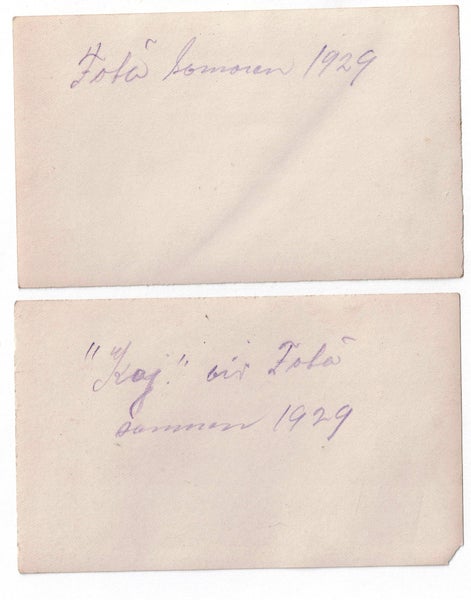 Fotö sommaren 1929
"Kaj." vid Fotö
sommaren 1929